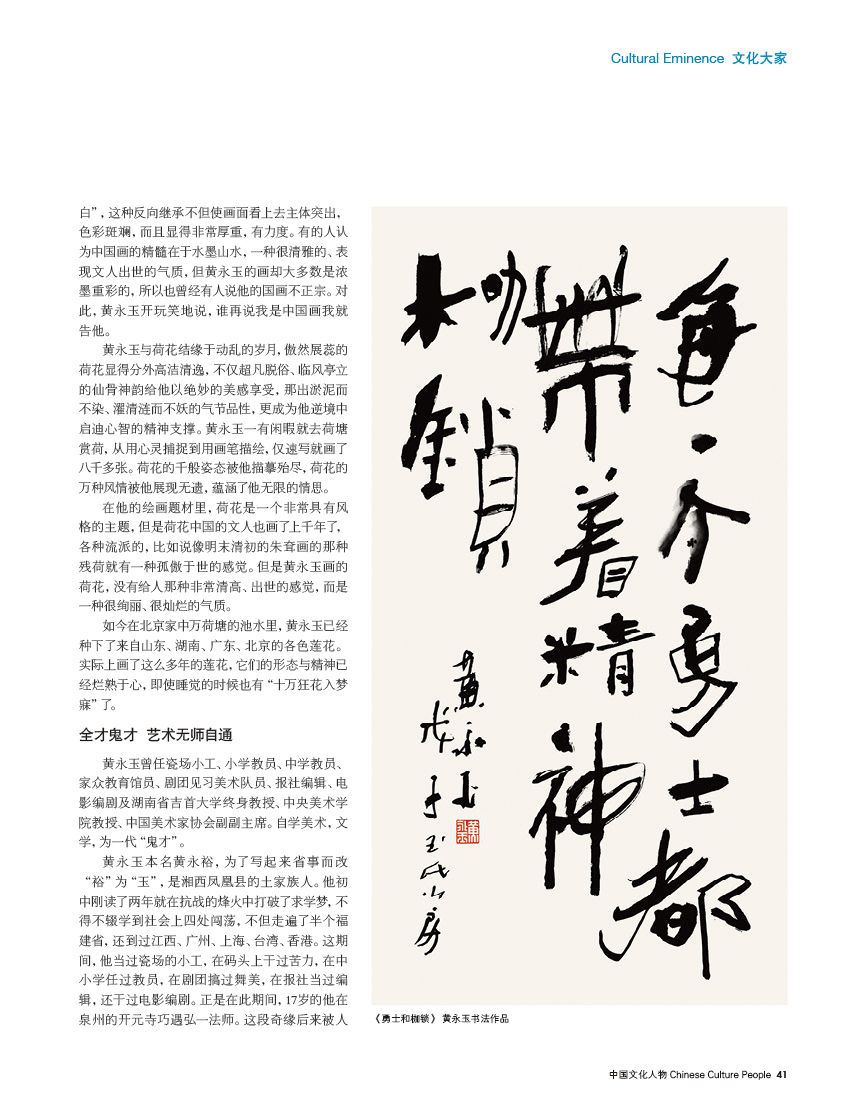 Cultural Eminence 文化大家
白”，这种反向继承不但使画面看上去主体突出，
色彩斑斓，而且显得非常厚重，有力度。有的人认
为中国画的精髓在于水墨山水，一种很清雅的、表
现文人出世的气质，但黄永玉的画却大多数是浓
墨重彩的，所以也曾经有人说他的国画不正宗。对
此，黄永玉开玩笑地说，谁再说我是中国画我就
告他。
黄永玉与荷花结缘于动乱的岁月，傲然展蕊的
荷花显得分外高洁清逸，不仅超凡脱俗、临风亭立
的仙骨神韵给他以绝妙的美感享受，那出淤泥而
不染、濯清涟而不妖的气节品性，更成为他逆境中
启迪心智的精神支撑。黄永玉一有闲暇就去荷塘
赏荷，从用心灵捕捉到用画笔描绘，仅速写就画了
八千多张。荷花的千般姿态被他描摹殆尽，荷花的
万种风情被他展现无遗，蕴涵了他无限的情思。
在他的绘画题材里，荷花是一个非常具有风
格的主题，但是荷花中国的文人也画了上千年了，
各种流派的，比如说像明末清初的朱耷画的那种
残荷就有一种孤傲于世的感觉。但是黄永玉画的
荷花，没有给人那种非常清高、出世的感觉，而是
一种很绚丽、很灿烂的气质。
如今在北京家中万荷塘的池水里，黄永玉已经
种下了来自山东、湖南、广东、北京的各色莲花。
实际上画了这么多年的莲花，它们的形态与精神已
经烂熟于心，即使睡觉的时候也有“十万狂花入梦
寐”了。
全才鬼才 艺术无师自通
黄永玉曾任瓷场小工、小学教员、中学教员、
家众教育馆员、剧团见习美术队员、报社编辑、电
影编剧及湖南省吉首大学终身教授、中央美术学
院教授、中国美术家协会副副主席。自学美术，文
学，为一代“鬼才”。
黄永玉本名黄永裕，为了写起来省事而改
“裕”为“玉”，是湘西凤凰县的土家族人。他初
中刚读了两年就在抗战的烽火中打破了求学梦，不
得不辍学到社会上四处闯荡，不但走遍了半个福
建省，还到过江西、广州、上海、台湾、香港。这期
间，他当过瓷场的小工，在码头上干过苦力，在中
小学任过教员，在剧团搞过舞美，在报社当过编
辑，还干过电影编剧。正是在此期间，17岁的他在
泉州的开元寺巧遇弘一法师。这段奇缘后来被人
每一个勇士都
带着精神
枷鎖
黄永玉
《勇士和枷锁》 黄永玉书法作品
中国文化人物 Chinese Culture People 41